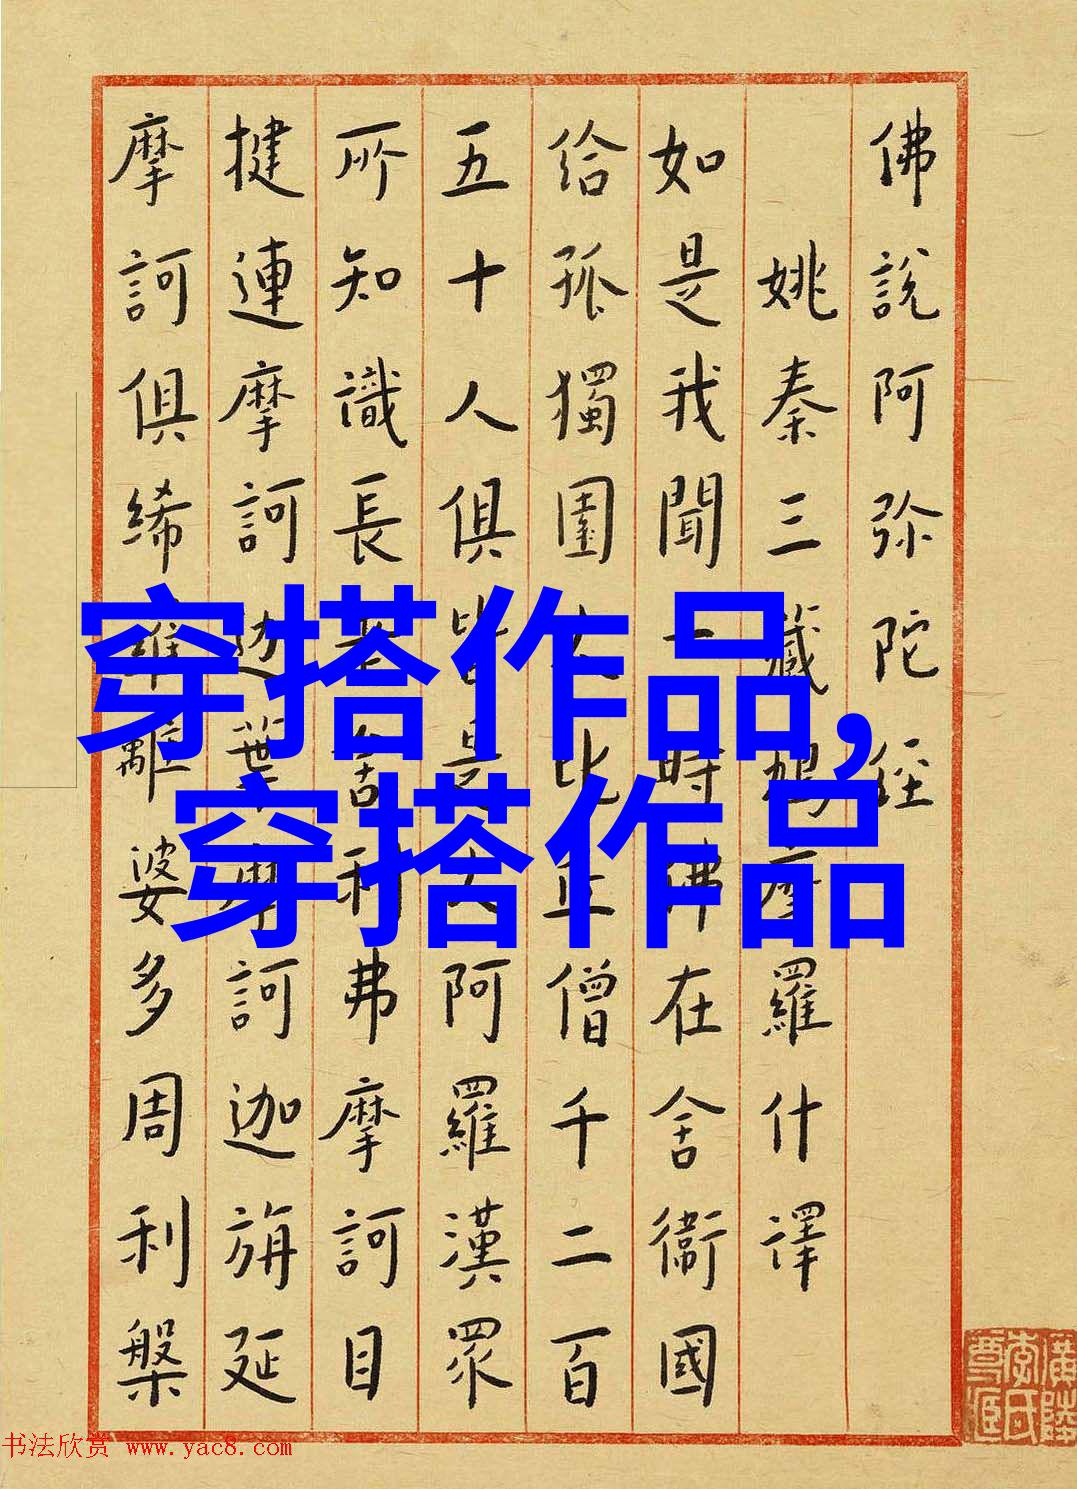 佛說阿弥陀經
姚秦三藏鳩摩羅什譯
如是我聞一時佛在舍衛國
給孤獨園大比丘僧千二百
五十人俱皆是大阿羅漢眾
所知識長老舍利弗摩訶目
揵連摩訶迦葉摩訶迦旃延
摩訶俱絺羅離婆多周利槃
穿搭作品,
穿搭作品
书法欣赏 www.yac8.com